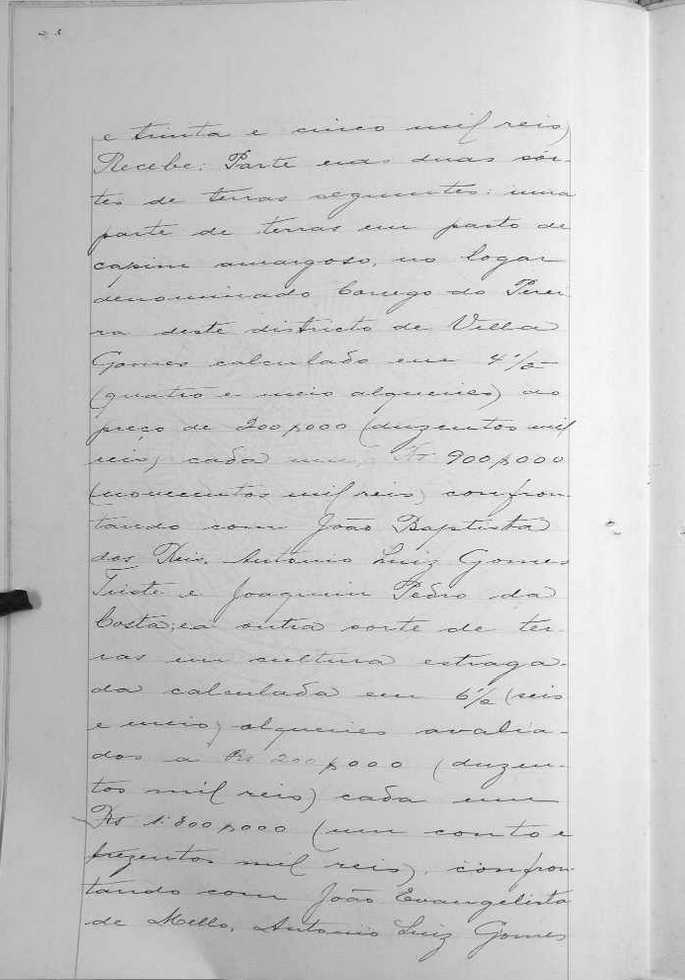 e trinta e cinco mil reis)
Recebe: Parte nas duas sor-
tes de terras seguintes: uma
parte de terras em pasto de
capim amargoso, no logar
denominado Corrego do Perei-
ra deste districto de Villa
Gomes calculado em 4 1/2
(quatro e meio alqueires) ao
preço de 200$000 (duzentos mil
reis) cada um, Rs 900$000
(novecentos mil reis) confron-
tando com João Baptista
dos Reis, Antonio Luiz Gomes
Triste e Joaquim Pedro da
Costa; e a outra sorte de ter-
ras em cultura estraga-
da calculada em 6 1/2 (seis
e meio) alqueires avalia-
dos a Rs 200$000 (duzen-
tos mil reis) cada um
Rs 1:300$000 (um conto e
trezentos mil reis), confron-
tando com João Evangelista
de Mello, Antonio Luiz Gomes